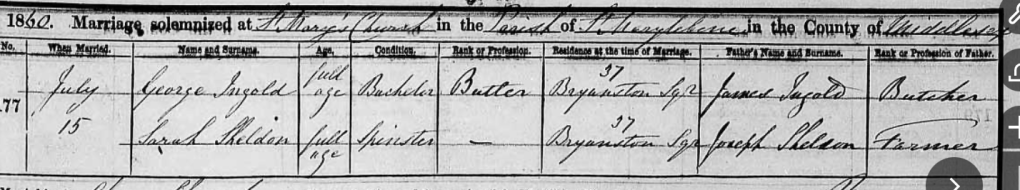 1860. Marriage solemnized at St Mary's Church in the Parish of St Marylebone in the County of Middlesex
No. When Married. Name and Surname. Age. Condition. Rank or Profession. Residence at the time of Marriage. Father's Name and Surname. Rank or Profession of Father.
177 July George Ingold full age Bachelor Butler 37 Bryanston Sqr James Ingold Butcher
15 Sarah Sheldon full age Spinster — 37 Bryanston Sqr Joseph Sheldon Farmer